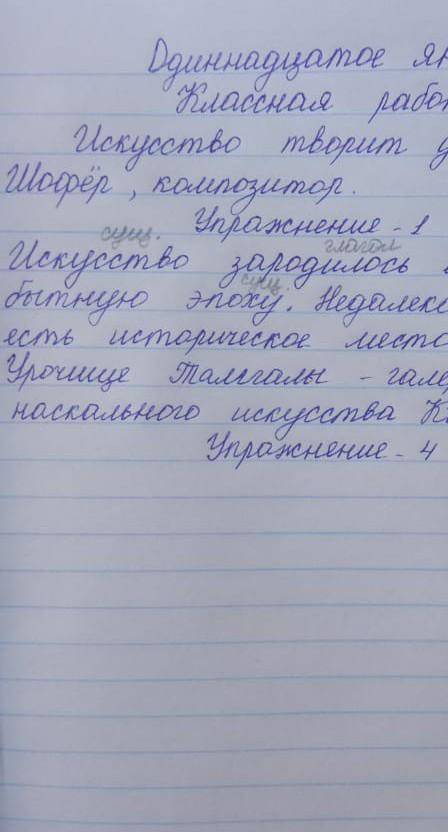 Одиннадцатое ян
Классная рабо
Искусство творит
Шофёр, композитор.
Упражнение - 1
сущ. глагол
Искусство зародилось
сущ.
бытную эпоху. Недалеко
есть историческое место
Урочище Талгалы - гале
наскального искусства К
Упражнение - 4